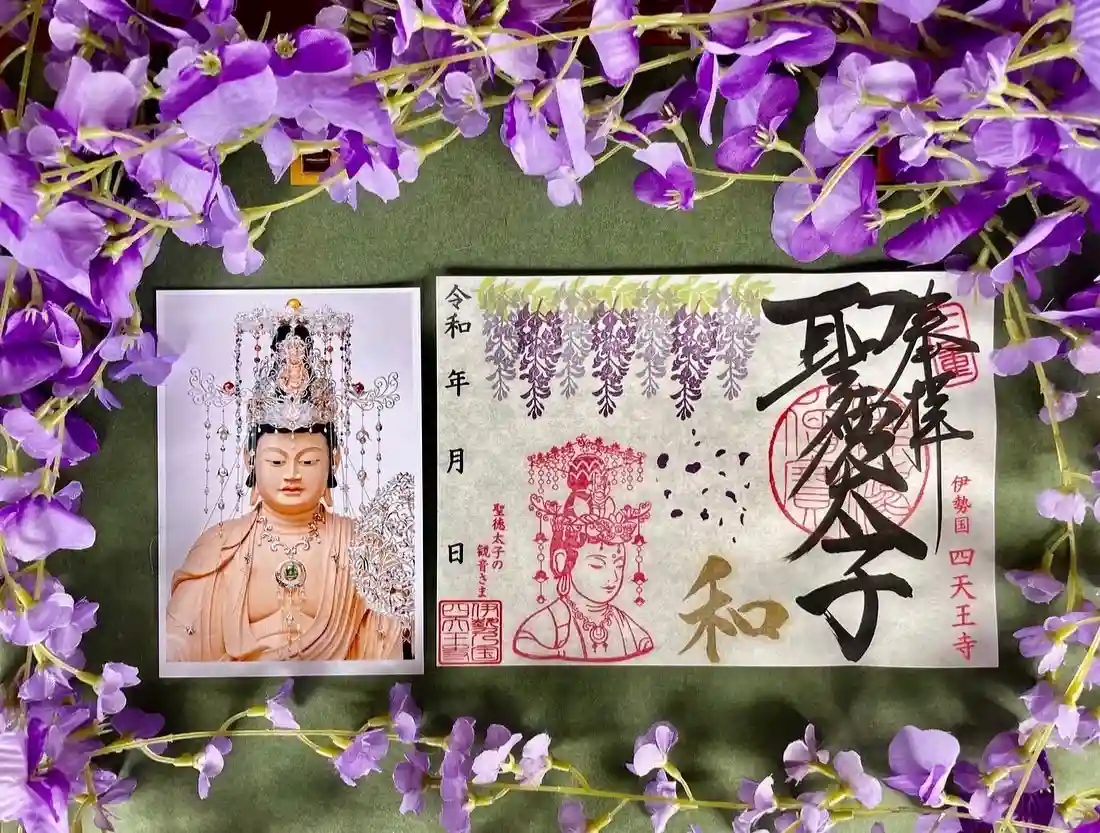 奉拝
聖徳太子
伊勢国 四天王寺
和
令和 年 月 日
聖徳太子の
観音さま
伊勢之国
四天王寺